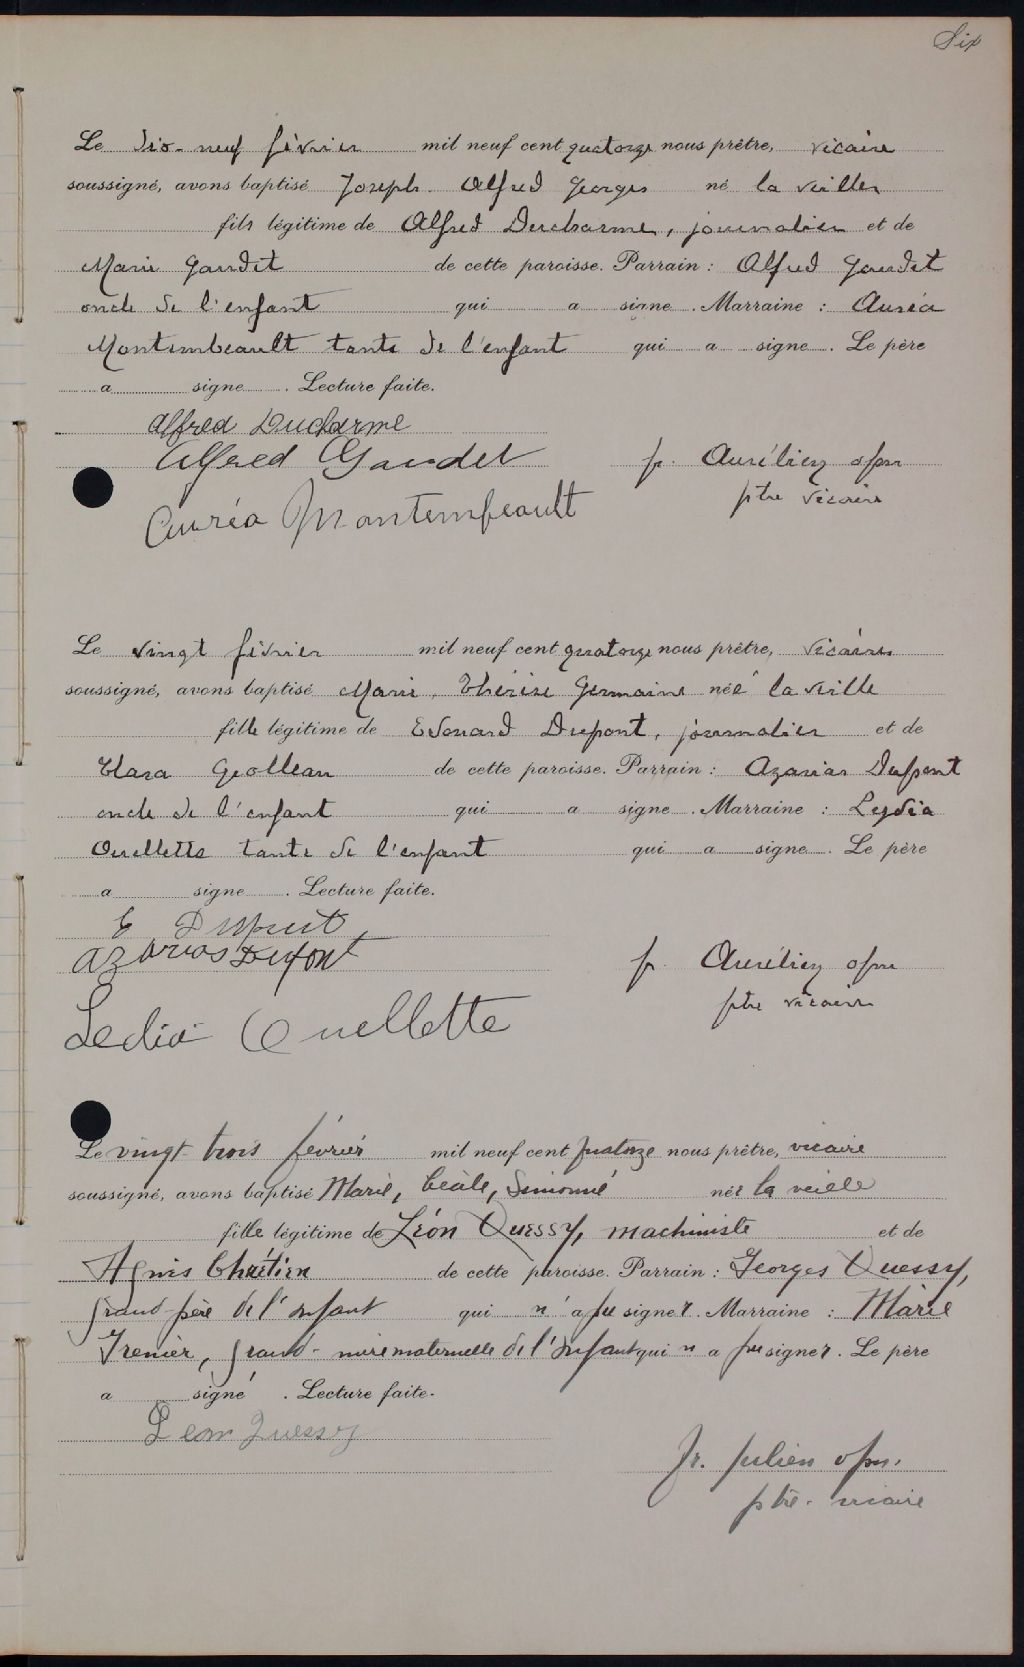 Six
Le dix-neuf février mil neuf cent quatorze nous prêtre, vicaire
soussigné, avons baptisé Joseph Alfred Georges né la veille
fils légitime de Alfred Ducharme, journalier et de
Marie Gaudet de cette paroisse. Parrain : Alfred Gaudet
oncle de l'enfant qui a signe. Marraine : Auréa
Montembeault tante de l'enfant qui a signe. Le père
a signe. Lecture faite.
Alfred Ducharme
Alfred Gaudet fr. Aurélien ofm
Auréa Montembeault ptre vicaire
Le vingt février mil neuf cent quatorze nous prêtre, vicaire
soussigné, avons baptisé Marie, Thérèse Germaine née la veille
fille légitime de Edouard Dupont, journalier et de
Clara de cette paroisse. Parrain : Azarias Dupont
oncle de l'enfant qui a signe. Marraine : Lydia
Ouellette tante de l'enfant qui a signe. Le père
a signe. Lecture faite.
E Dupont
Azarias Dupont fr. Aurélien ofm
Ledia Ouellette ptre vicaire
Le vingt-trois février mil neuf cent quatorze nous prêtre, vicaire
soussigné, avons baptisé Marie, Cécile, Simonne née la veille
fille légitime de Léon Quessy, machiniste et de
Agnès Chrétien de cette paroisse. Parrain : Georges Quessy,
grand-père de l'enfant qui n'a pu signer. Marraine : Marie
Grenier, grand-mère maternelle de l'enfant qui n a pu signer. Le père
a signé. Lecture faite.
Leon Quessy
fr. Julien ofm.
ptre-vicaire